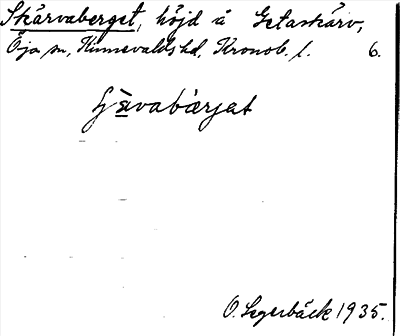 Skärvaberget, höjd å Getaskärv,
Öja sn, Kinnevalds hd, Kronob. l. 6.
O. Segerbäck 1935.